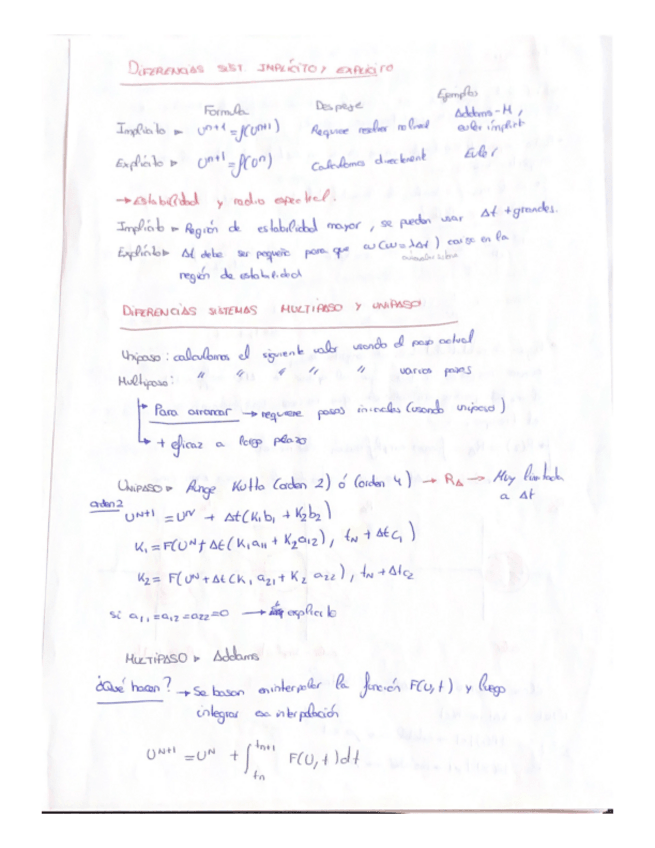 DIFERENCIAS SIST. IMPLÍCITO Y EXPLÍCITO
Formula Despeje Ejemplos
Implícito → U^{n+1} = f(U^{n+1}) Requiere resolver Addams-M, euler implícit
Explícito → U^{n+1} = f(U^n) Calculamos directament Euler
→ Estabilidad y radio espectral.
Implícito → Región de estabilidad mayor, se pueden usar Δt + grandes.
Explícito → Δt debe ser pequeño para que ω (ω = λΔt) caiga en la
región de estabilidad
DIFERENCIAS SISTEMAS MULTIPASO Y UNIPASO
Unipaso: calculamos el siguiente valor usando el paso actual
Multipaso: " " " " " varios pasos
Para arrancar → requiere pasos iniciales (usando unipaso)
+ eficaz a largo plazo
UNIPASO → Runge Kutta (orden 2) ó (orden 4) → RΔ → Muy limitada
a Δt
orden 2
U^{N+1} = U^N + Δt(K₁b₁ + K₂b₂)
K₁ = F(U^N + Δt(K₁a₁₁ + K₂a₁₂), t_N + Δt c₁)
K₂ = F(U^N + Δt(K₁ a₂₁ + K₂ a₂₂), t_N + Δt c₂
si a₁₁ = a₁₂ = a₂₂ = 0 → explícito
MULTIPASO → Addams
¿Qué hacen? → Se basan en interpolar la función F(U,t) y luego
integrar esa interpolación
U^{N+1} = U^N + ∫_{tn}^{tn+1} F(U,t)dt